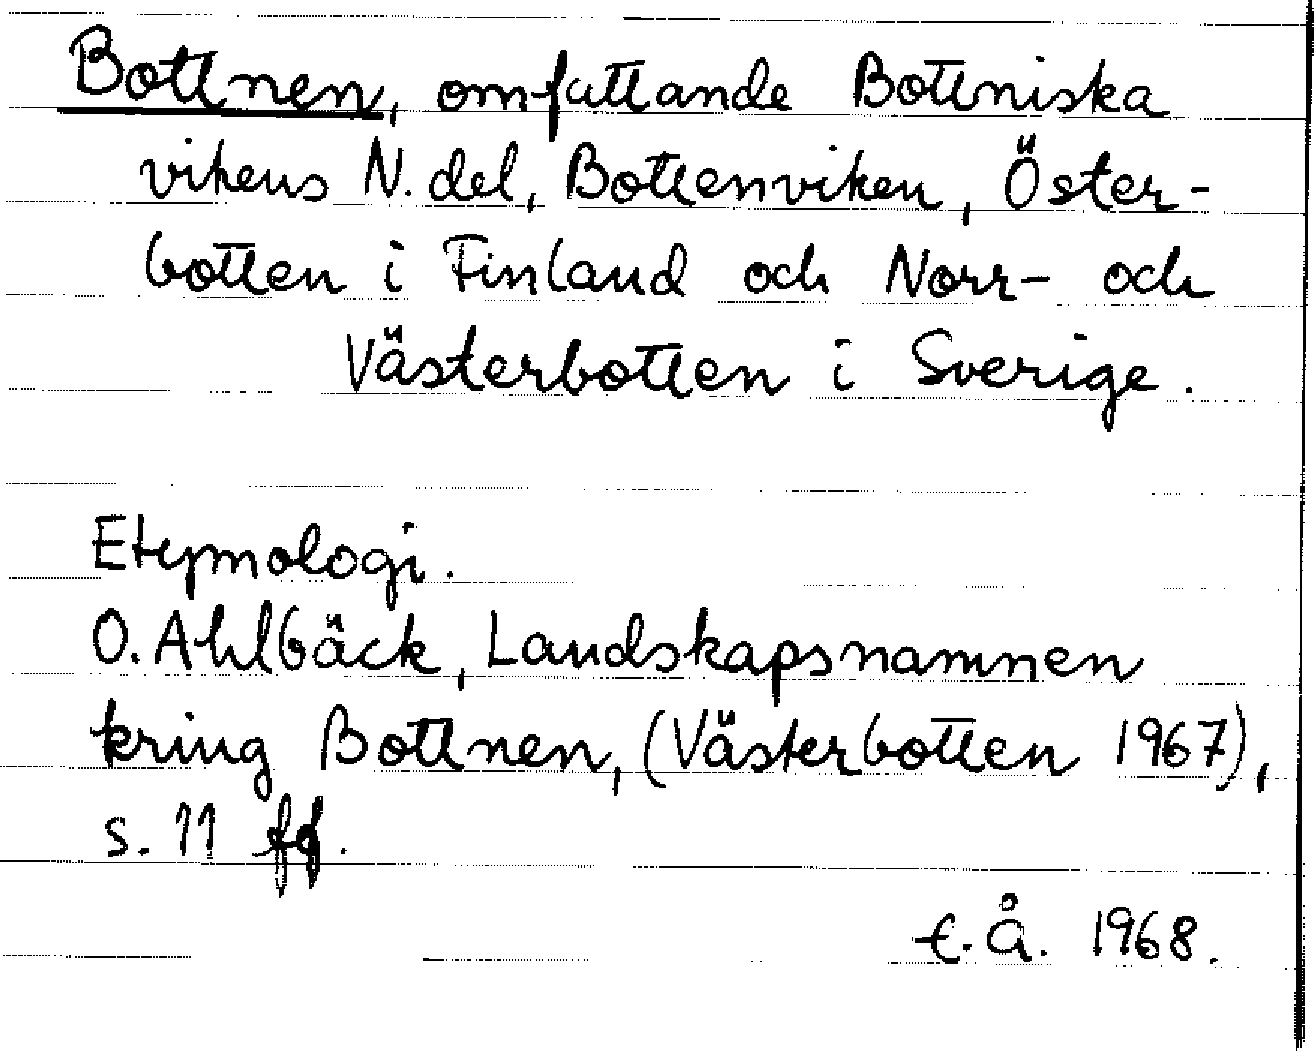 Bottnen, omfattande Bottniska
vikens N. del, Bottenviken, Öster-
botten i Finland och Norr- och
Västerbotten i Sverige.
Etymologi.
O. Ahlbäck, Landskapsnamnen
kring Bottnen, (Västerbotten 1967),
s. 11 ff.
t. Å. 1968.